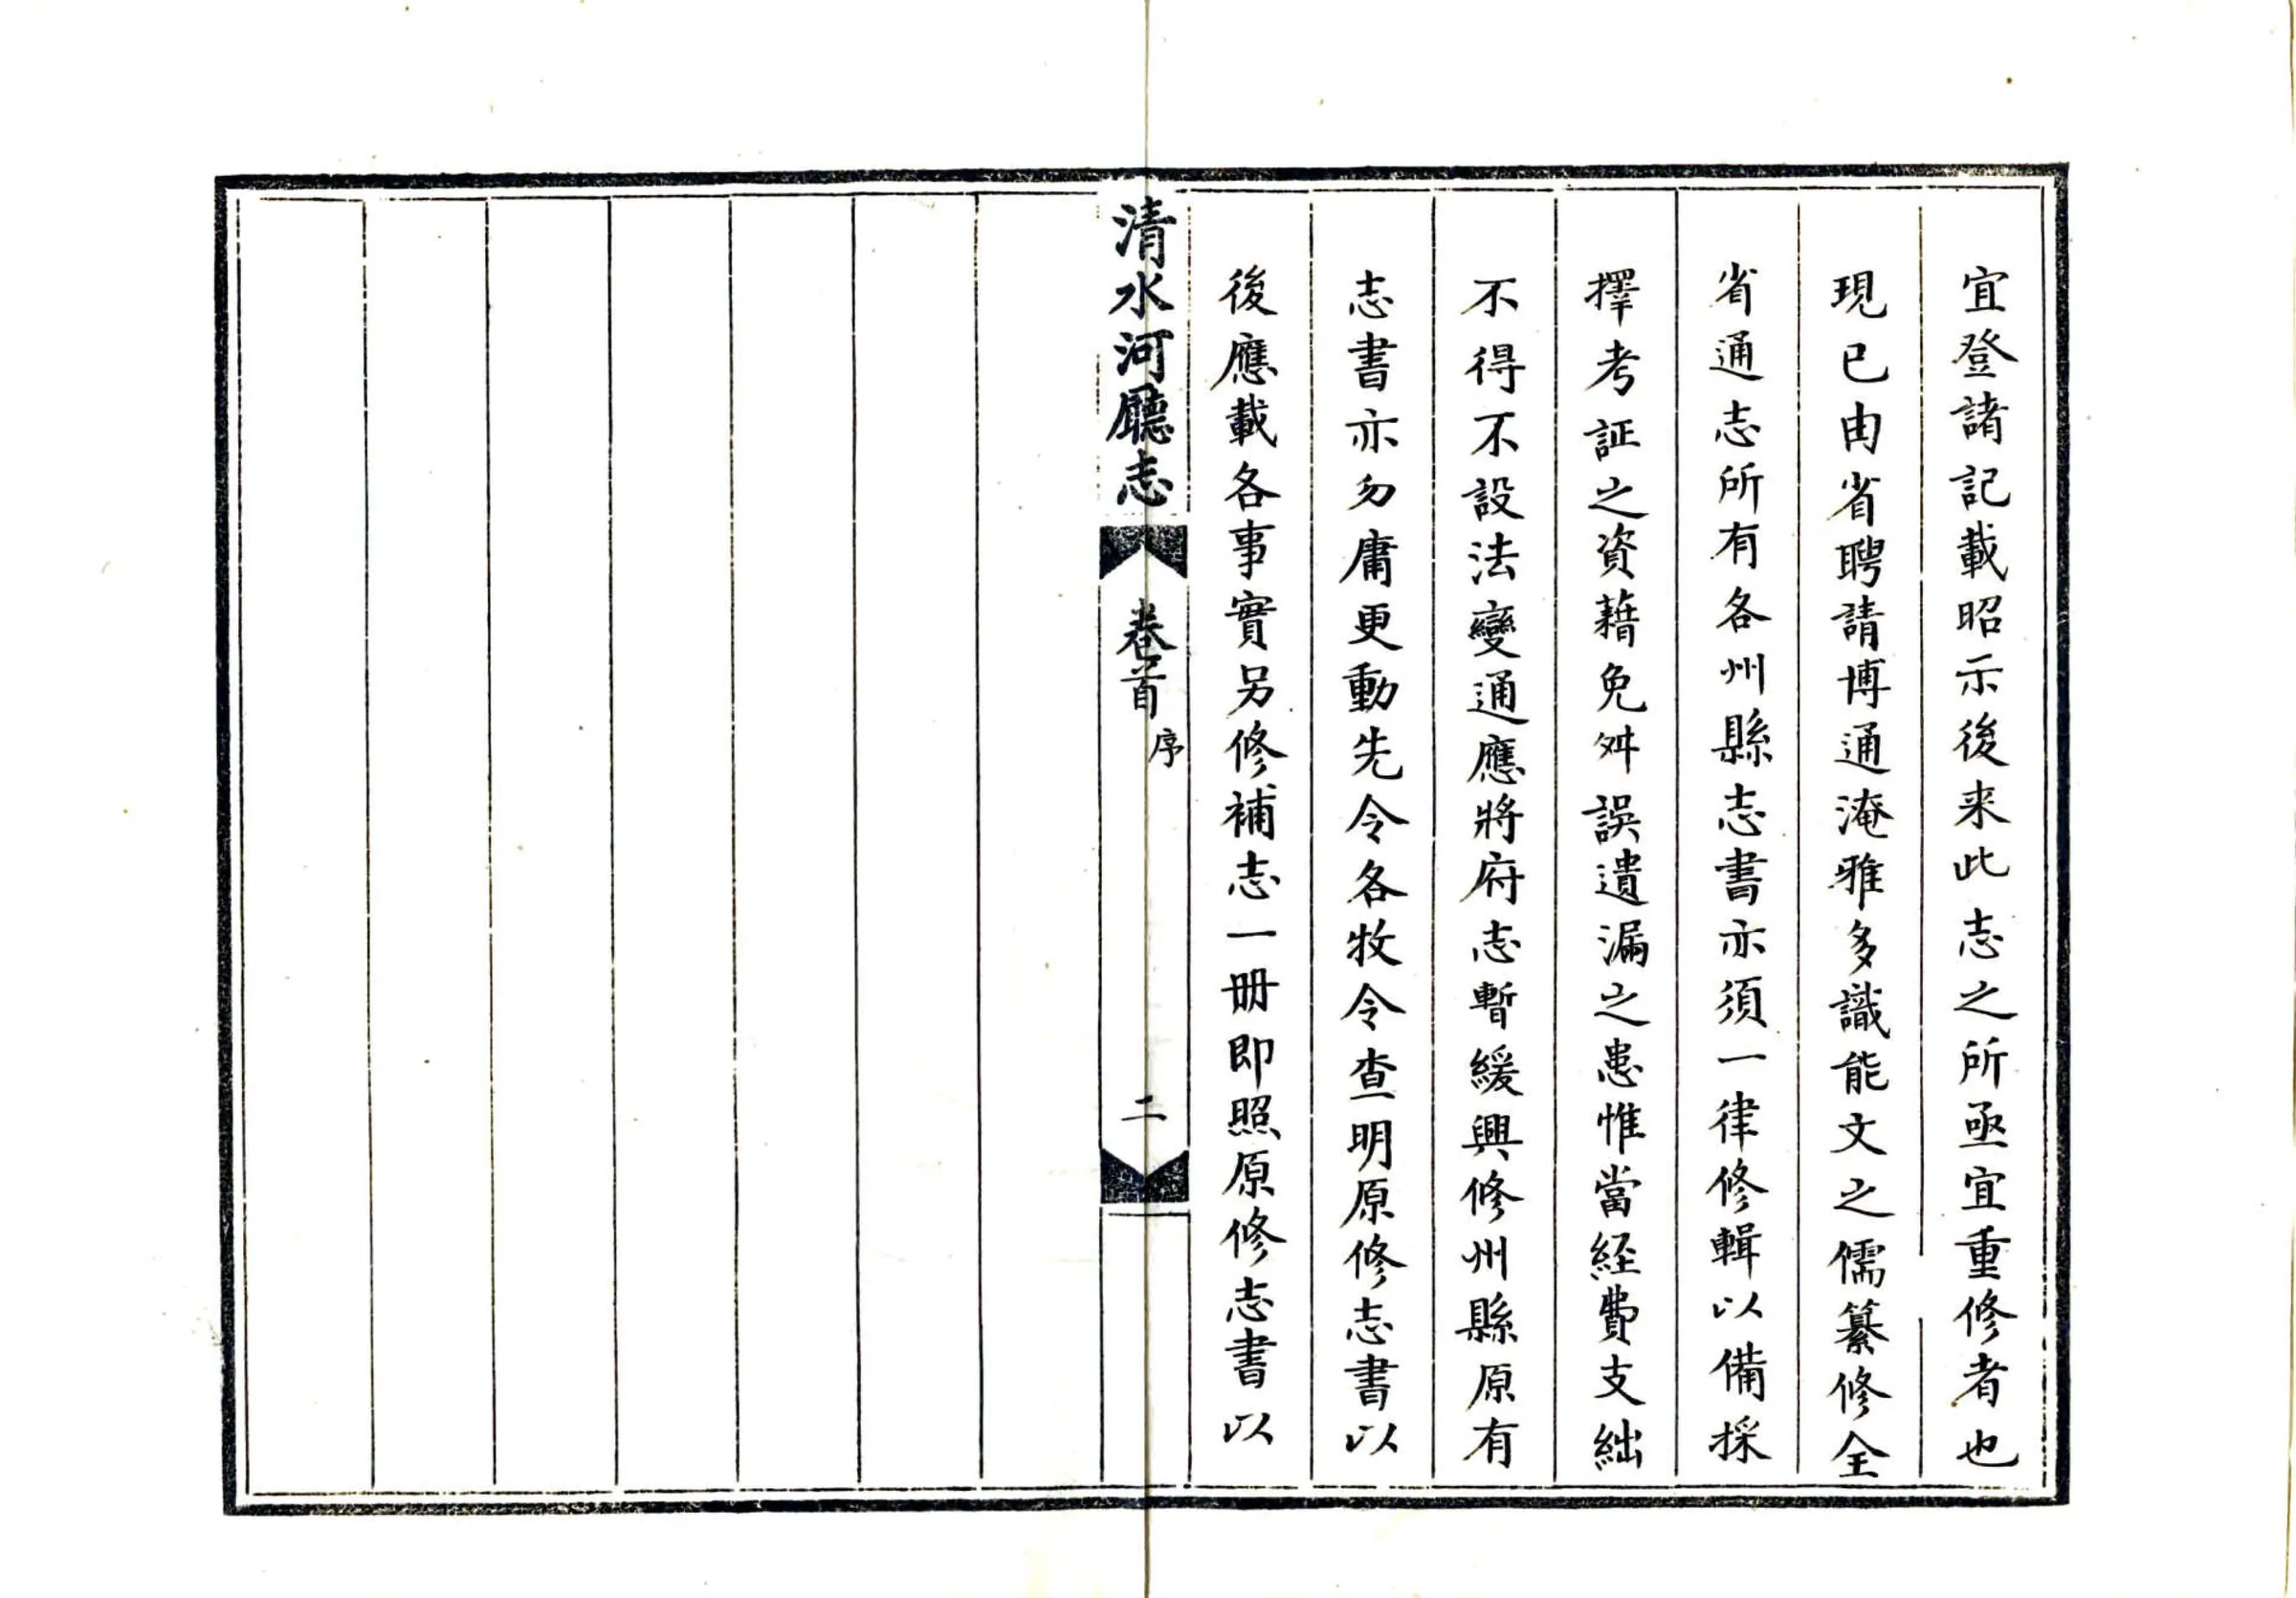 宜登諸記載昭示後来此志之所亟宜重修者也
現已由省聘請博通淹雅多識能文之儒纂修全
省通志所有各州縣志書亦須一律修輯以備採
擇考証之資藉免舛誤遺漏之患惟當経費支絀
不得不設法變通應將府志暫緩興修州縣原有
志書亦勿庸更動先令各牧令查明原修志書以
後應載各事實另修補志一冊即照原修志書以
清水河廳志
卷首
序
二